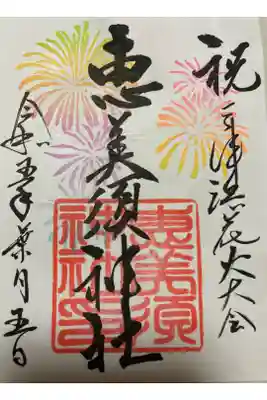 祝 手津港花火大会
恵美須神社
恵美須神社印
令和五年葉月五日